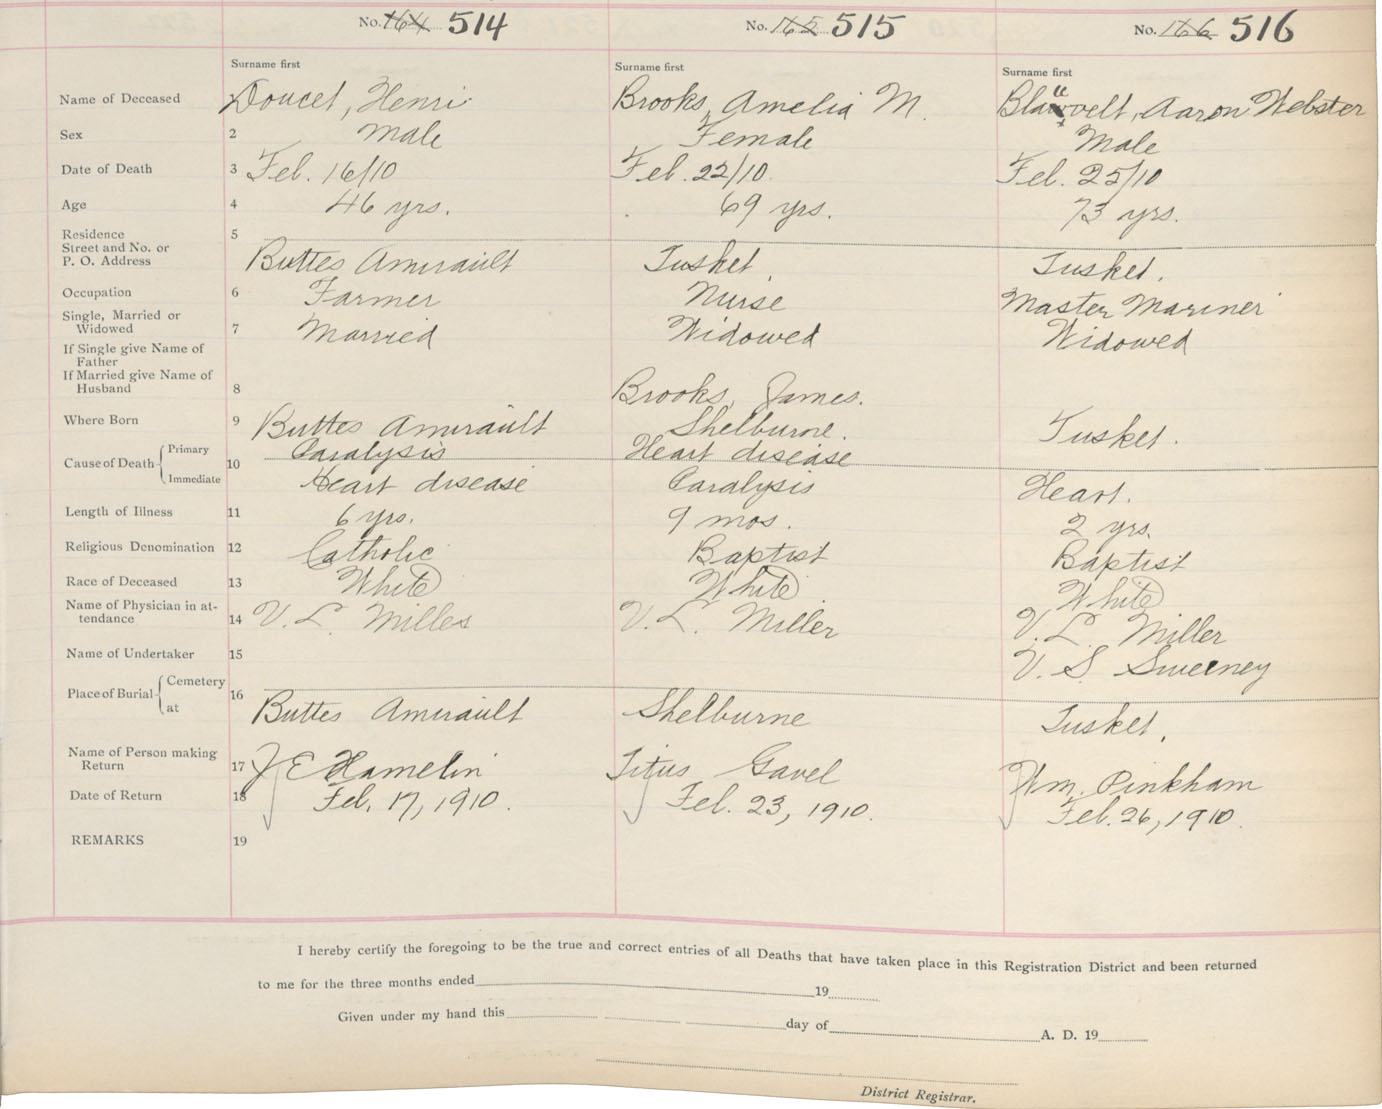 No. 164 514 No. 165 515 No. 166 516
Surname first Surname first Surname first
Name of Deceased Doucet, Henri Brooks, Amelia M. Blauvelt, Aaron Webster
Sex 2 Male Female Male
Date of Death 3 Feb. 16/10 Feb. 22/10. Feb. 25/10
Age 4 46 yrs. 69 yrs. 73 yrs.
Residence 5
Street and No. or
P. O. Address Buttes Amirault Tusket. Tusket.
Occupation 6 Farmer Nurse Master Mariner
Single, Married or
Widowed 7 Married Widowed Widowed
If Single give Name of
Father
If Married give Name of
Husband 8 Brooks, James.
Where Born 9 Buttes Amirault Shelburne. Tusket.
Cause of Death Primary 10 Paralysis Heart disease
Immediate Heart disease Paralysis Heart.
Length of Illness 11 6 yrs. 9 mos. 2 yrs.
Religious Denomination 12 Catholic Baptist Baptist
Race of Deceased 13 White White White
Name of Physician in at-
tendance 14 V. L. Miller V. L. Miller V. L. Miller
Name of Undertaker 15 V. S. Sweeney
Place of Burial Cemetery 16
at Buttes Amirault Shelburne Tusket.
Name of Person making
Return 17 J E Hamelin Titus Gavel Wm. Pinkham
Date of Return 18 Feb. 17, 1910. Feb. 23, 1910. Feb. 26, 1910.
REMARKS 19
I hereby certify the foregoing to be the true and correct entries of all Deaths that have taken place in this Registration District and been returned
to me for the three months ended 19
Given under my hand this day of A. D. 19
District Registrar.